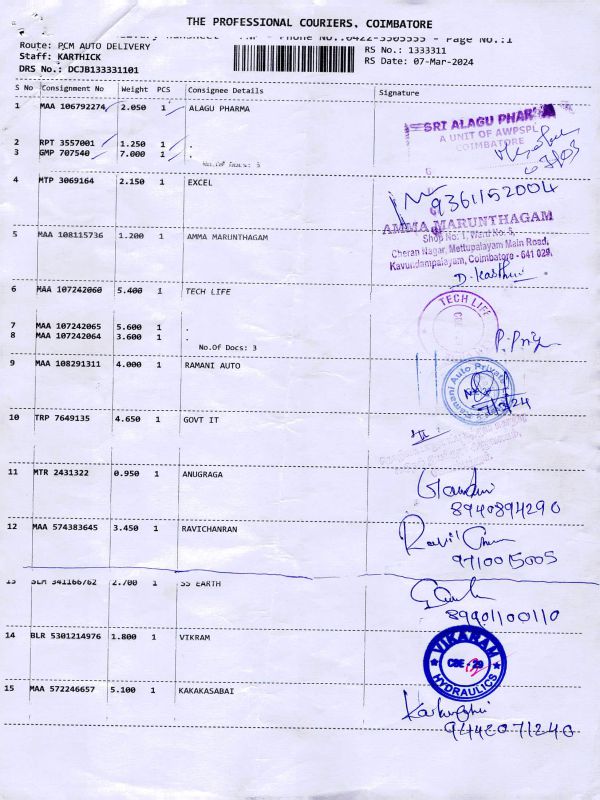 THE PROFESSIONAL COURIERS, COIMBATORE
Page No.:1
Route: PCM AUTO DELIVERY
RS No.: 1333311
Staff: KARTHICK
RS Date: 07-Mar-2024
DRS No.: DCJB133331101
S No Consignment No Weight PCS Consignee Details Signature
1 MAA 106792274 2.050 1 ALAGU PHARMA
SRI ALAGU PHARMA
A UNIT OF AWPSPL
COIMBATORE
2 RPT 3557001 1.250 1 .
3 GMP 707540 7.000 1 .
No.Of Docs: 3
4 MTP 3069164 2.150 1 EXCEL
9361152004
AMMA MARUNTHAGAM
Shop No: 1, Ward No. 5,
Cheran Nagar, Mettupalayam Main Road,
Kavundampalayam, Coimbatore - 641 029.
5 MAA 108115736 1.200 1 AMMA MARUNTHAGAM
6 MAA 107242060 5.400 1 TECH LIFE
TECH LIFE
7 MAA 107242065 5.600 1 .
8 MAA 107242064 3.600 1 .
No.Of Docs: 3
9 MAA 108291311 4.000 1 RAMANI AUTO
Ramani Auto Private
10 TRP 7649135 4.650 1 GOVT IT
11 MTR 2431322 0.950 1 ANUGRAGA
8940894290
12 MAA 574383645 3.450 1 RAVICHANRAN
9710015005
13 SLM 341166762 2.700 1 SS EARTH
89901100110
14 BLR 5301214976 1.800 1 VIKRAM
VIKARAM
CBE - 29
HYDRAULICS
15 MAA 572246657 5.100 1 KAKAKASABAI